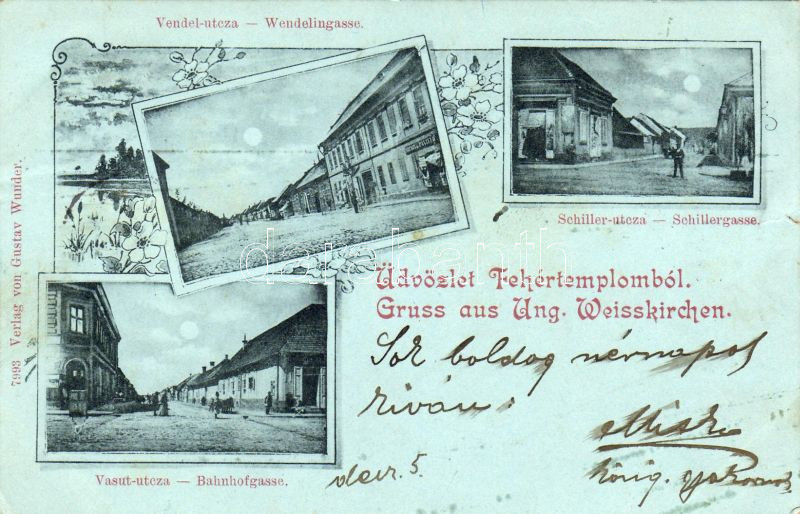 Vendel-utcza — Wendelingasse.
Schiller-utcza — Schillergasse.
7993 Verlag von Gustav Wunder.
Üdvözlet Fehértemplomból.
Gruss aus Ung. Weisskirchen.
Sok boldog névnapot
kíván:
decz. 5.
Vasut-utcza — Bahnhofgasse.